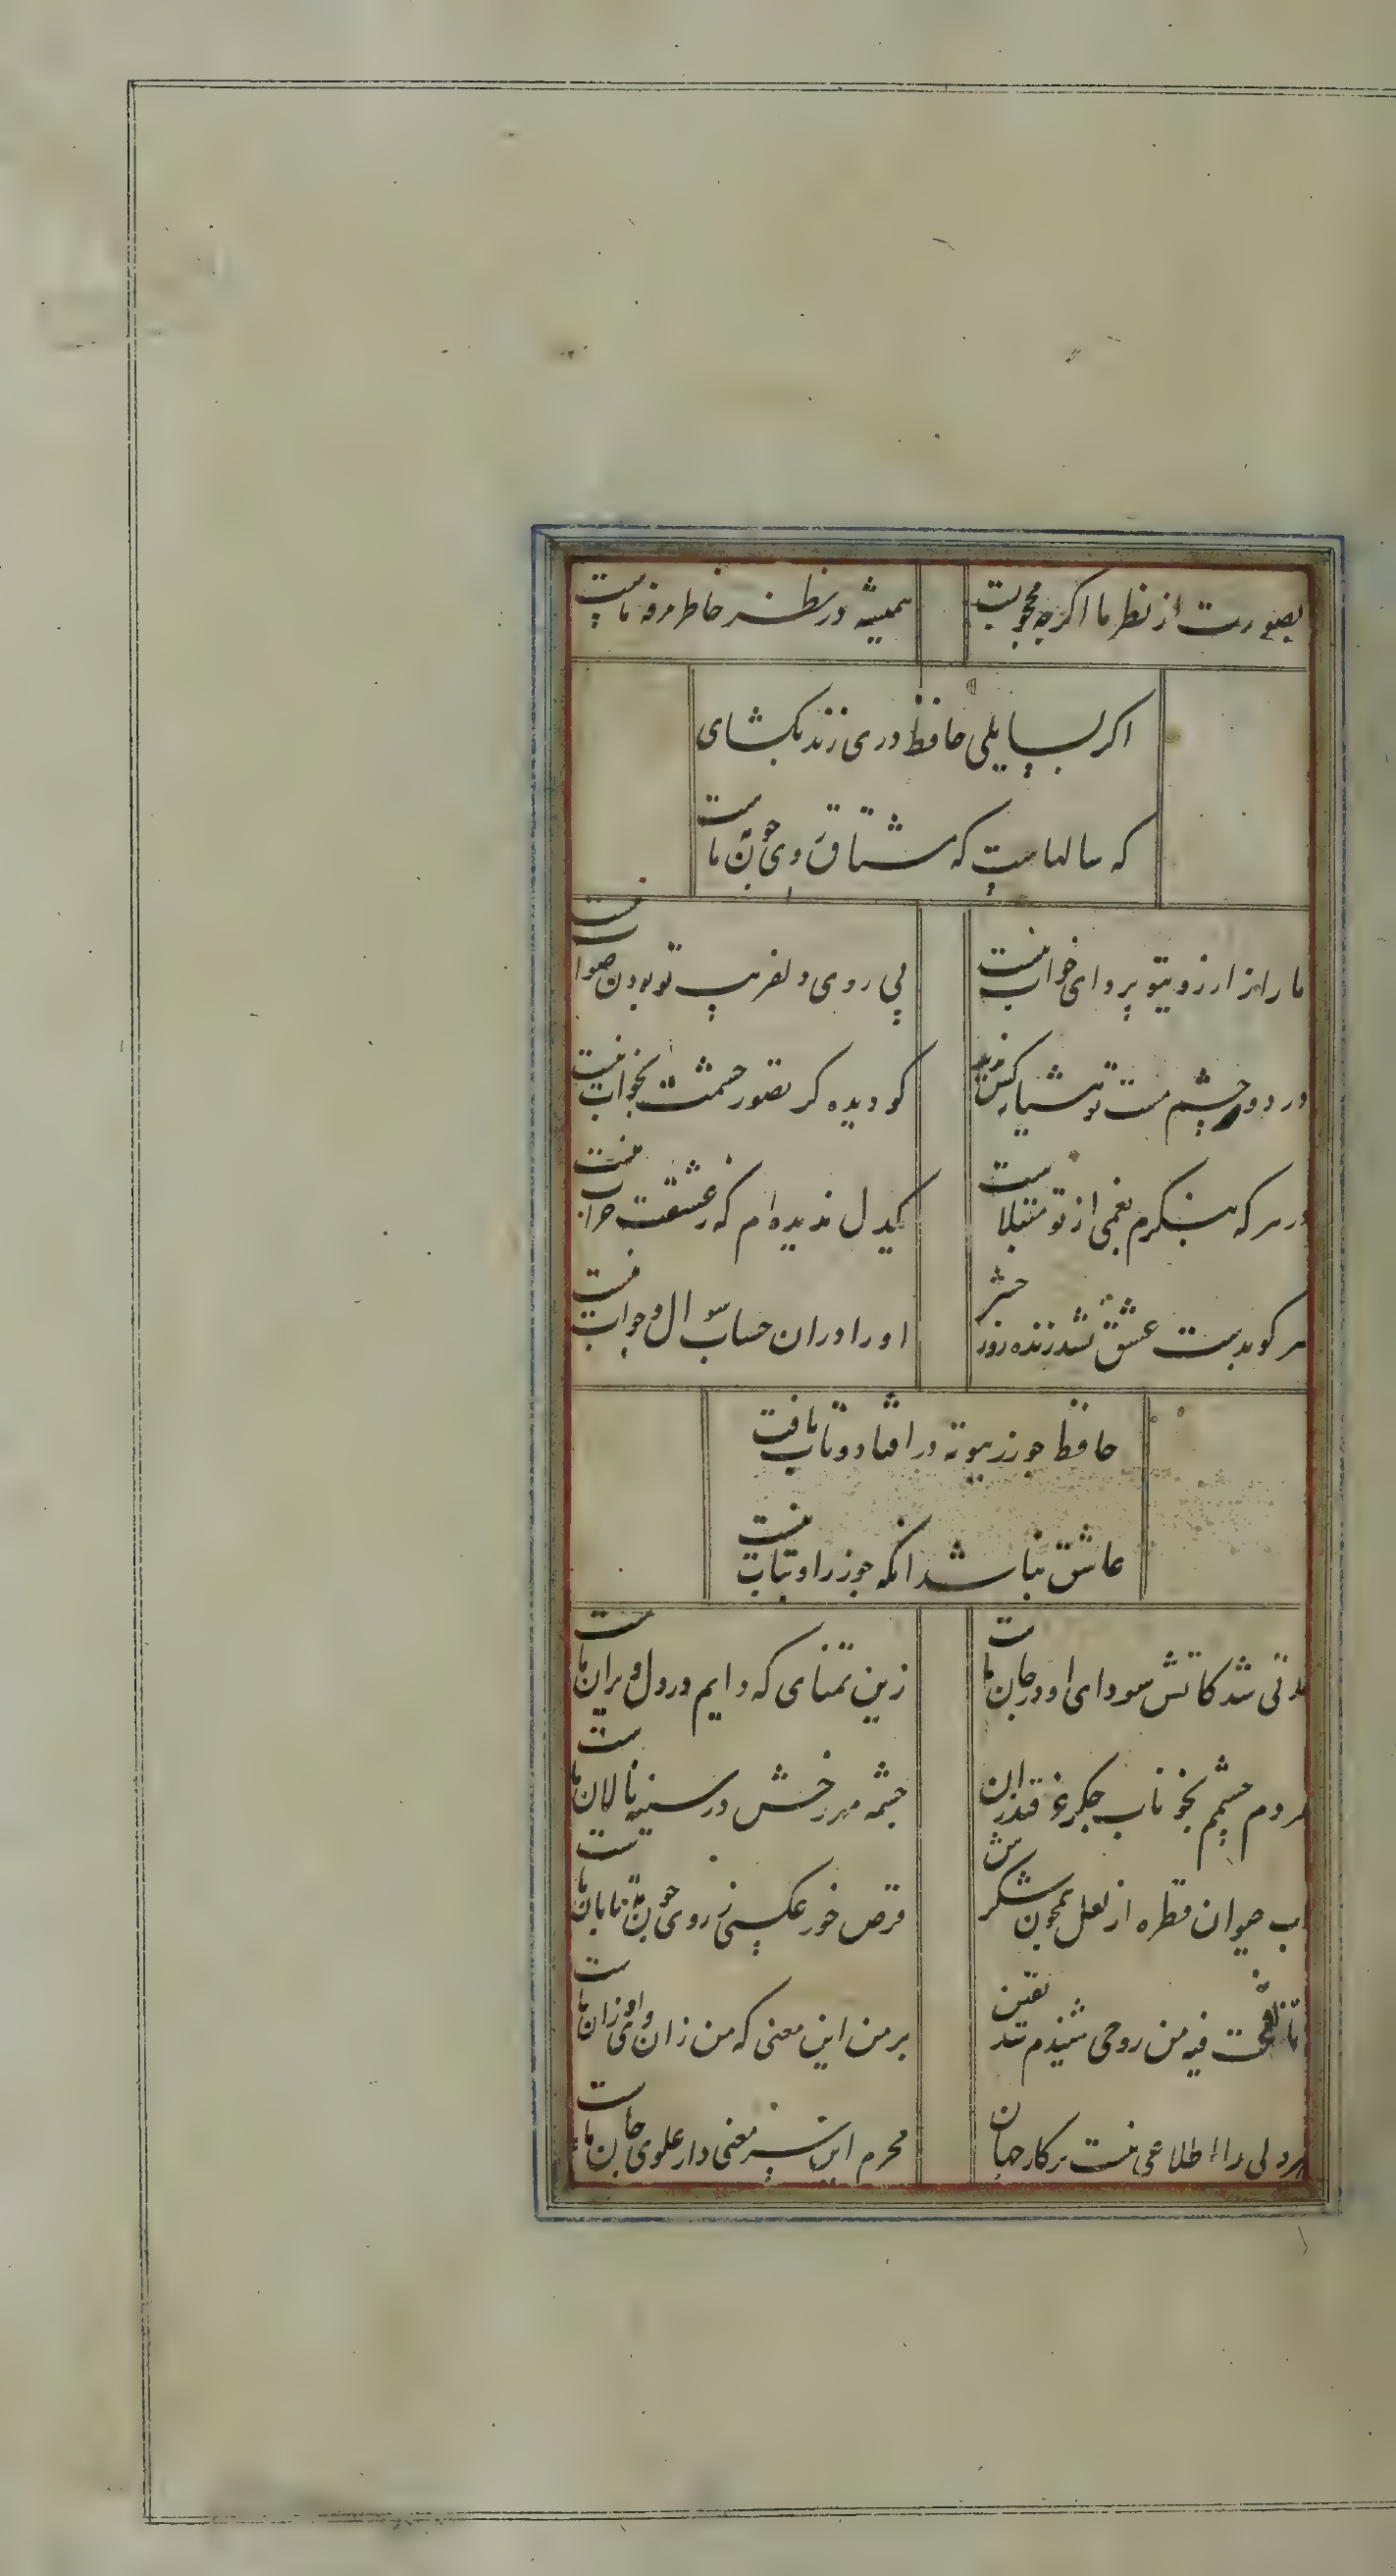 بصورت از نظر ما اگرچه محجوبست همیشه در نظر خاطر مرفه ماست
اگر بسایلی حافظ دری زند بگشای
که سالهاست که مشتاق روی چون مه ماست
ما را از ارزو یتو پروای خواب نیست بی روی دلفریب تو بودن صواب نیست
در دور چشم مست تو هشیار کس ندید کو دیده کز تصور حسمت بخواب نیست
در هر که بنگرم بغمی از تو مبتلاست یکدل ندیده ام که ز عشقت خراب نیست
هر کو بدست عشق نشد زنده روز حشر او را در ان حساب سوال و جواب نیست
حافظ چو زر ببوته در افتاد و تاب یافت
عاشق نباشد انکه چو زر او بتاب نیست
مدتی شد کاتش سودای او در جان ماست زین تمنای که دایم در دل ویران ماست
مردم چشمم بخوناب جگر غرقند از ان چشمه مهر رخش در سینه نالان ماست
اب حیوان قطره از لعل همچون شکرش قرص خور عکسی ز روی چون مه تابان ماست
تا نفخت فیه من روحی شنیدم شد یقین بر من این معنی که من زان وی و او زان ماست
هر دلی را اطلاعی نیست بر کار جهان محرم این سر معنی دار علوی جان ماست